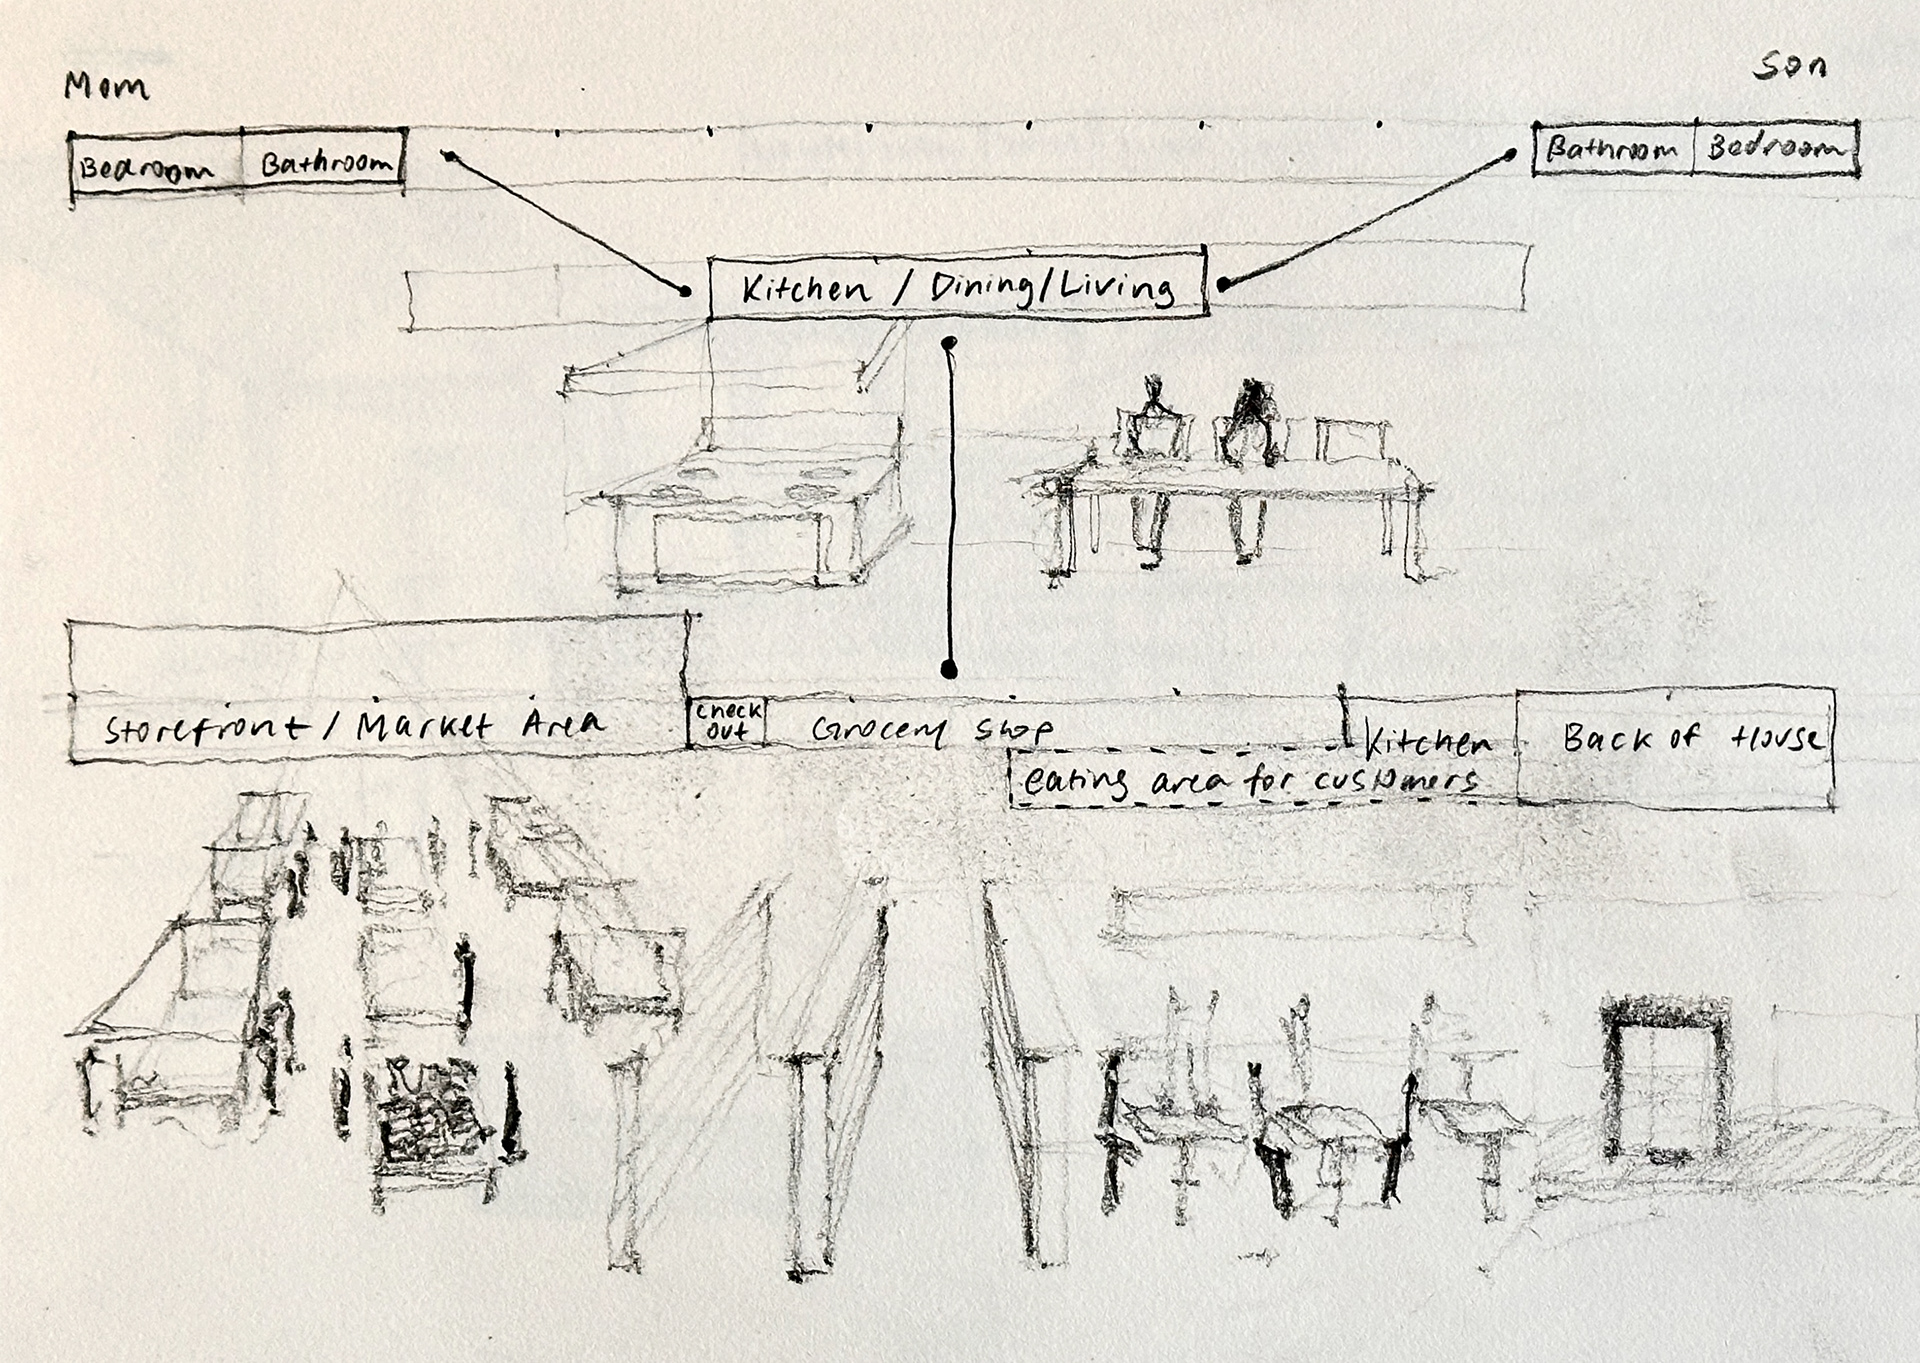 Mom
Son
Bedroom
Bathroom
Bathroom
Bedroom
Kitchen / Dining/Living
Storefront / Market Area
Check
Out
Grocery Shop
Kitchen
Back of House
eating area for customers